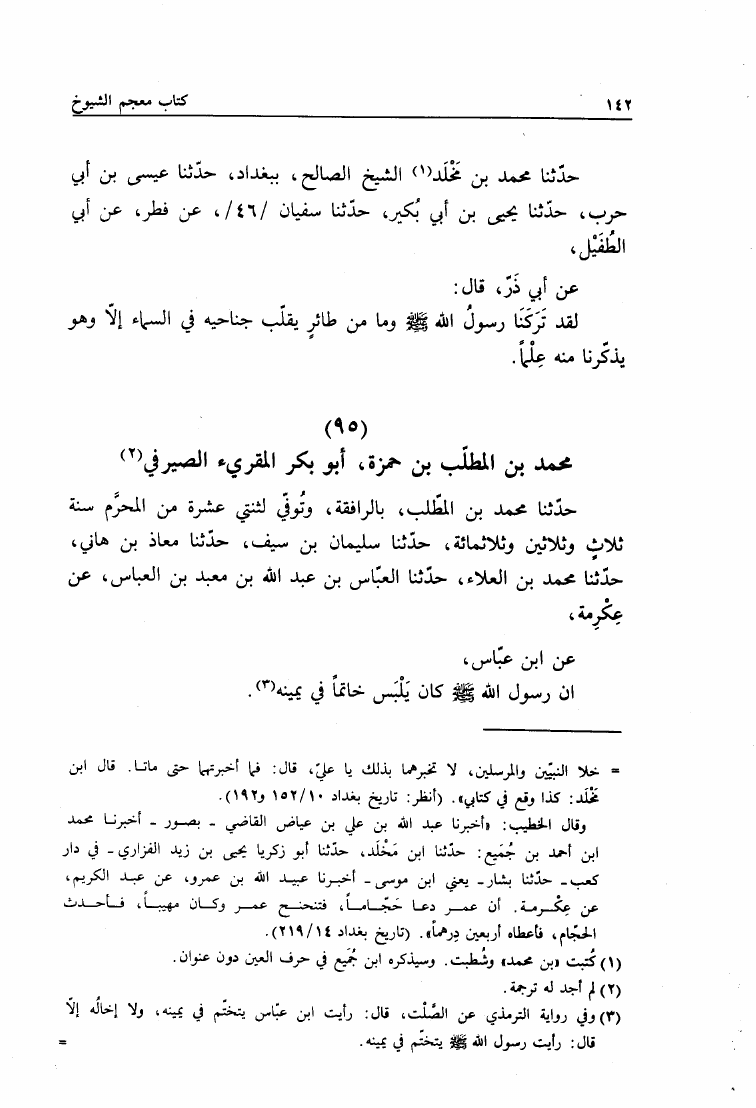 ١٤٢ كتاب معجم الشيوخ
حدّثنا محمد بن مَخْلَد(١) الشيخ الصالح، ببغداد، حدّثنا عيسى بن أبي
حرب، حدّثنا يحيى بن أبي بُكير، حدّثنا سفيان /٤٦/، عن فطر، عن أبي
الطُفَيْل،
عن أبي ذَرّ، قال:
لقد تَرَكَنَا رسولُ الله ﷺ وما من طائرٍ يقلّب جناحيه في السماء إلاّ وهو
يذكّرنا منه عِلْماً.
(٩٥)
محمد بن المطلّب بن حمزة، أبو بكر المقريء الصيرفي(٢)
حدّثنا محمد بن المطّلب، بالرافقة، وتُوفّي لثنتي عشرة من المحرَّم سنة
ثلاثٍ وثلاثين وثلاثمائة، حدّثنا سليمان بن سيف، حدّثنا معاذ بن هاني،
حدّثنا محمد بن العلاء، حدّثنا العبّاس بن عبد الله بن معبد بن العباس، عن
عِكْرِمة،
عن ابن عبّاس،
ان رسول الله ﷺ كان يَلْبَس خاتماً في يمينه(٣).
= خلا النبيّين والمرسلين، لا تخبرهما بذلك يا عليّ، قال: فما أخبرتهما حتى ماتا. قال ابن
مَخْلَد: كذا وقع في كتابي». (أنظر: تاريخ بغداد ١٥٢/١٠ و١٩٢).
وقال الخطيب: «أخبرنا عبد الله بن علي بن عياض القاضي - بصور - أخبرنا محمد
ابن أحمد بن جُمَيع: حدّثنا ابن مَخْلَد، حدّثنا أبو زكريا يحيى بن زيد الفزاري - في دار
كعب - حدّثنا بشار - يعني ابن موسى - أخبرنا عبيد الله بن عمرو، عن عبد الكريم،
عن عِكْرمة. أن عمر دعا حَجّاماً، فتنحنح عمر وكان مهيباً، فأحدث
الحجّام، فأعطاه أربعين دِرهماً». (تاريخ بغداد ٢١٩/١٤).
(١) كُتبت «بن محمد» وشُطبت. وسيذكره ابن جُمَيع في حرف العين دون عنوان.
(٢) لم أجد له ترجمة.
(٣) وفي رواية الترمذي عن الصَّلْت، قال: رأيت ابن عبّاس يتختّم في يمينه، ولا إخالُه إلاّ
قال: رأيت رسول الله ﷺ يتختّم في يمينه. =